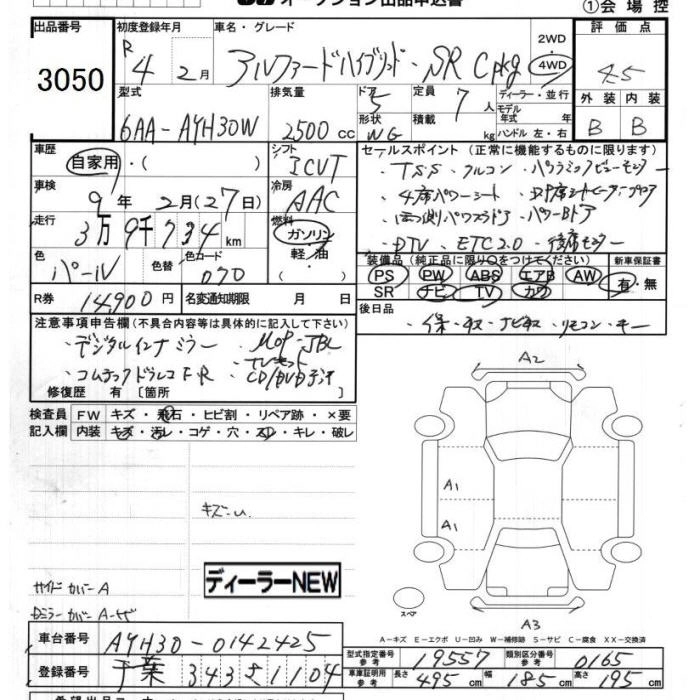 オークション出品申込書
①会場控
出品番号 3050
初度登録年月 R 4 年 2月
車名・グレード アルファードハイブリッド・SR Cpkg
2WD 4WD
評価点 4.5
外装 B 内装 B
型式 6AA-AYH30W
排気量 2500 cc
ドア 5
形状 WG
定員 7人
積載 kg
ディーラー・並行
モデル年式 年式
ハンドル 左・右
車歴 自家用・( )
シフト ICVT
車検 9年 2月(27日)
冷房 AAC
走行 3万9千734km
燃料 ガソリン 軽油・
色 パール 色替 色コード 070
R券 14,900円 名変通知期限 月 日
セールスポイント (正常に機能するものに限ります)
・TSS・フルコン・パノラミックビューモニター
・4席パワーシート
・両側パワスラドア・パワーBドア
・DTV・ETC2.0・後席モニター
装備品 (純正品に限り○をつけてください) 新車保証書
PS PW ABS エアB AW 有・無
SR ナビ TV カワ
後日品 ・保・取・ナビ取・リモコン・キー
注意事項申告欄 (不具合内容等は具体的に記入して下さい)
・デジタルインナーミラー ・MOP-JBL
・TVキット
・コムテックドラレコF・R・CD/DVDデッキ
修復歴 有 〔箇所 〕
検査員 FW キズ・飛石・ヒビ割・リペア跡・×要
記入欄 内装 キズ・汚レ・コゲ・穴・スレ・キレ・破レ
キズ
ディーラーNEW
サイドカバーA
Dミラーカバー
A2
A1
A1
A3
スペア
A-キズ E-エクボ U-凹み W-補修跡 S-サビ C-腐食 XX-交換済
車台番号 AYH30-0142425
登録番号 千葉 343 さ 1104
型式指定番号 参考 19557 類別区分番号 参考 0165
車庫証明用 参考 長さ 495cm 幅 185cm 高さ 195cm